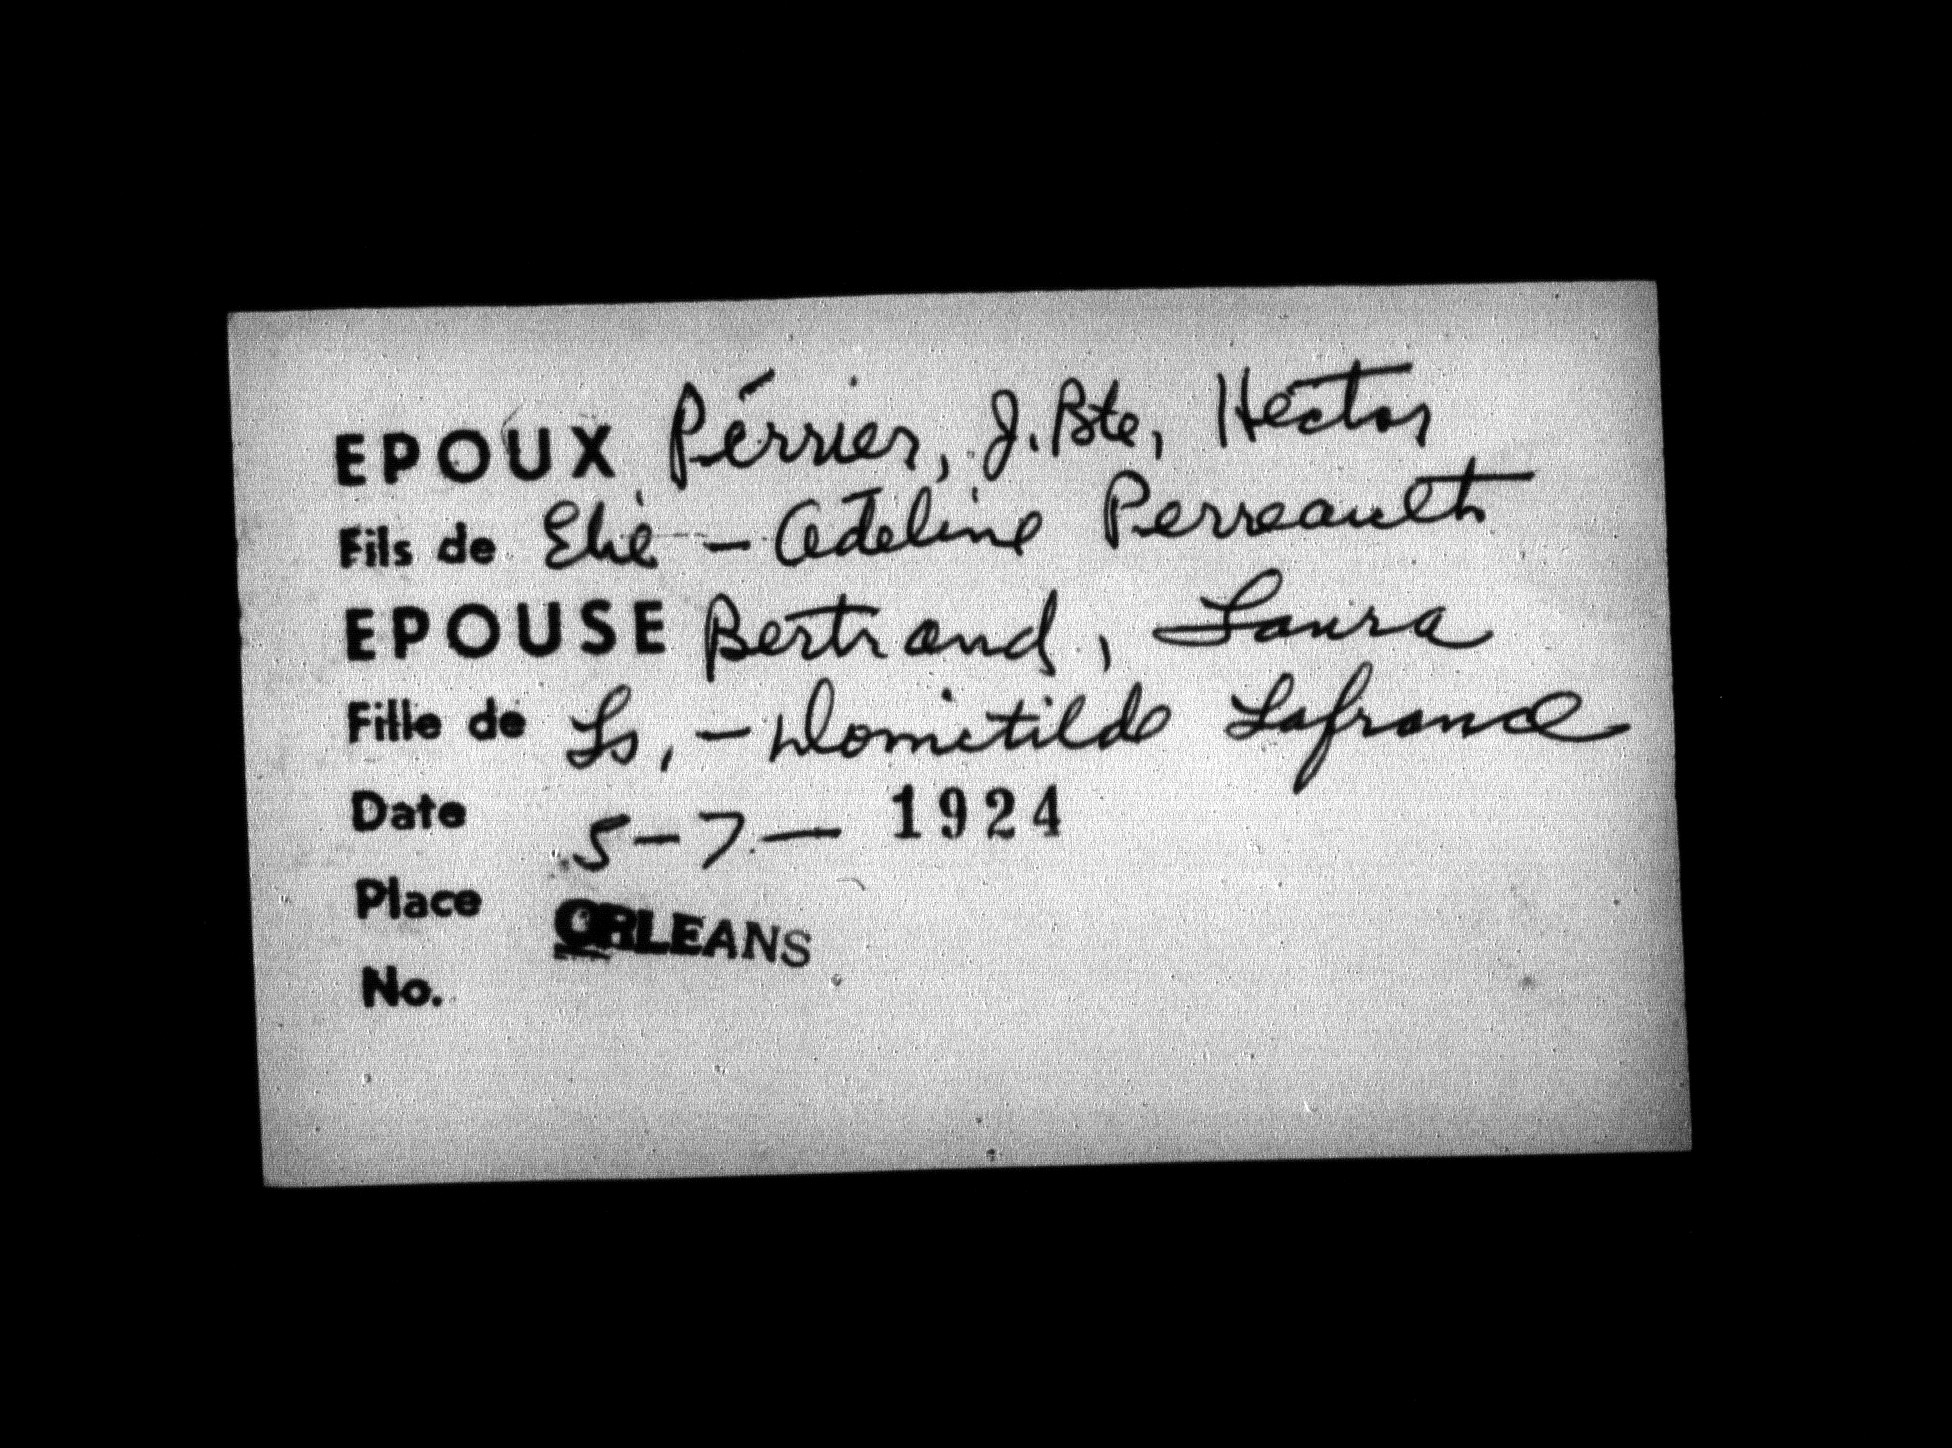 EPOUX Pérrier, J. Bte, Hector
Fils de Elie - Adeline Perreault
EPOUSE Bertrand, Laura
Fille de Ls, - Domitilde Lafrance
Date 5-7- 1924
Place ORLEANS
No.